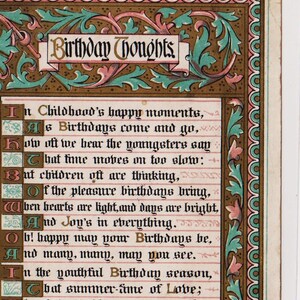 Birthday Thoughts.
In Childhood's happy moments,
As Birthdays come and go,
How oft we hear the youngsters say
That time moves on too slow:
But children oft are thinking,
Of the pleasure birthdays bring,
When hearts are light, and days are bright,
And Joy's in everything.
Oh! happy may your Birthdays be,
And many, many, may you see.
In the youthful Birthday season,
That summer-time of Love;